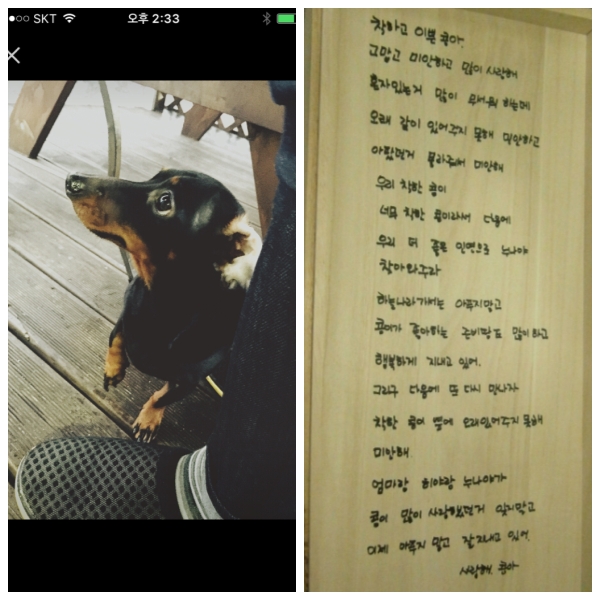 SKT 오후 2:33
착하고 이쁜 콩아.
고맙고 미안하고 많이 사랑해
혼자있는거 많이 무서워 하는데
오래 같이 있어주지 못해 미안하고
아팠던거 몰라줘서 미안해
우리 착한 콩이
너무 착한 콩이라서 다음에
우리 더 좋은 인연으로 누나야
찾아와주라
하늘나라가서는 아푸지말고
콩이가 좋아하는 준비랑도 많이하고
행복하게 지내고 있어.
그리구 다음에 또 다시 만나자
착한 콩이 옆에 오래있어주지 못해
미안해.
엄마랑 히야랑 누나야가
콩이 많이 사랑했던거 잊지말고
이제 아푸지 말고 잘지내고 있어.
사랑해. 콩아